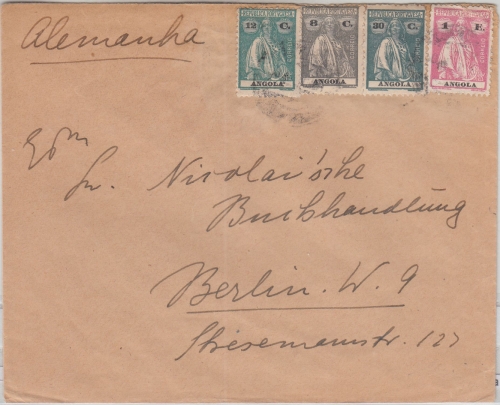 Alemanha
REPUBLICA PORTUGUESA REPUBLICA PORTUGUESA REPUBLICA PORTUGUESA REPUBLICA PORTUGUESA
12 C. 8 C. 30 C. 1 E.
ANGOLA ANGOLA ANGOLA ANGOLA
Nicolai'sche
Buchhandlung
Berlin. W. 9
Stresemannstr. 127